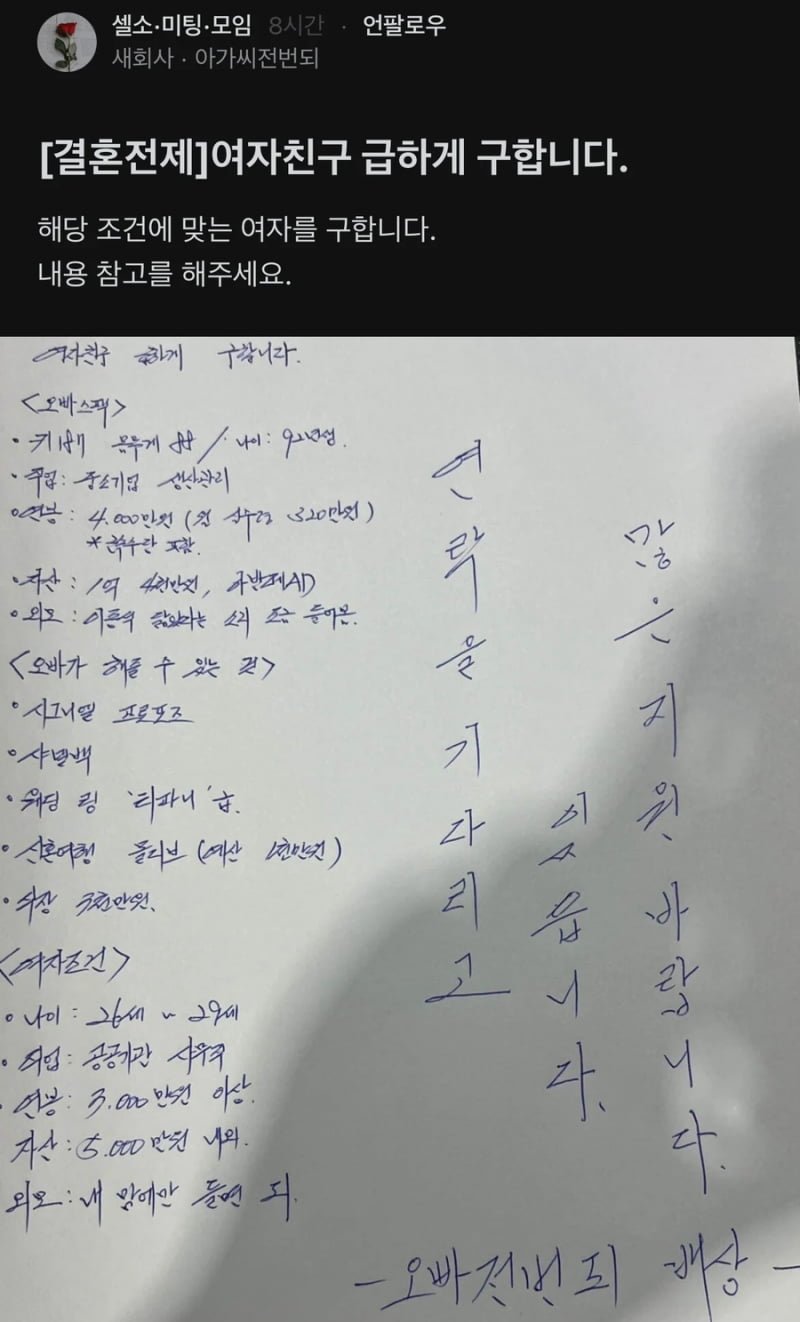 셀소·미팅·모임 8시간 · 언팔로우
새회사 · 아가씨전번되
[결혼전제]여자친구 급하게 구합니다.
해당 조건에 맞는 여자를 구합니다.
내용 참고를 해주세요.
여자친구 급하게 구합니다.
<오빠스펙>
· 키 몸무게 / 나이: 92년생.
· 직업: 중소기업 생산관리
· 연봉: 4.000만원 (월 실수령 320만원)
* 특수란 포함.
· 자산: 1억 4천만원, 아반떼AD
· 외모: 이름의 닮았다는 소리 조금 들어봄.
<오빠가 해줄 수 있는 것>
· 시그니엘 프로포즈
· 샤넬백
· 웨딩 링 '티파니'급.
· 신혼여행 몰디브 (예산 1천만원)
· 차장 3천만원.
<여자조건>
· 나이: 26세 ~ 29세
· 직업: 공공기관 사무직
· 연봉: 3.000만원 이상.
자산: 5.000만원 내외.
외모: 내 맘에만 들면 되.
연락을 기다리고
있읍니다.
많은 지원 바랍니다.
- 오빠전번되 배상 -